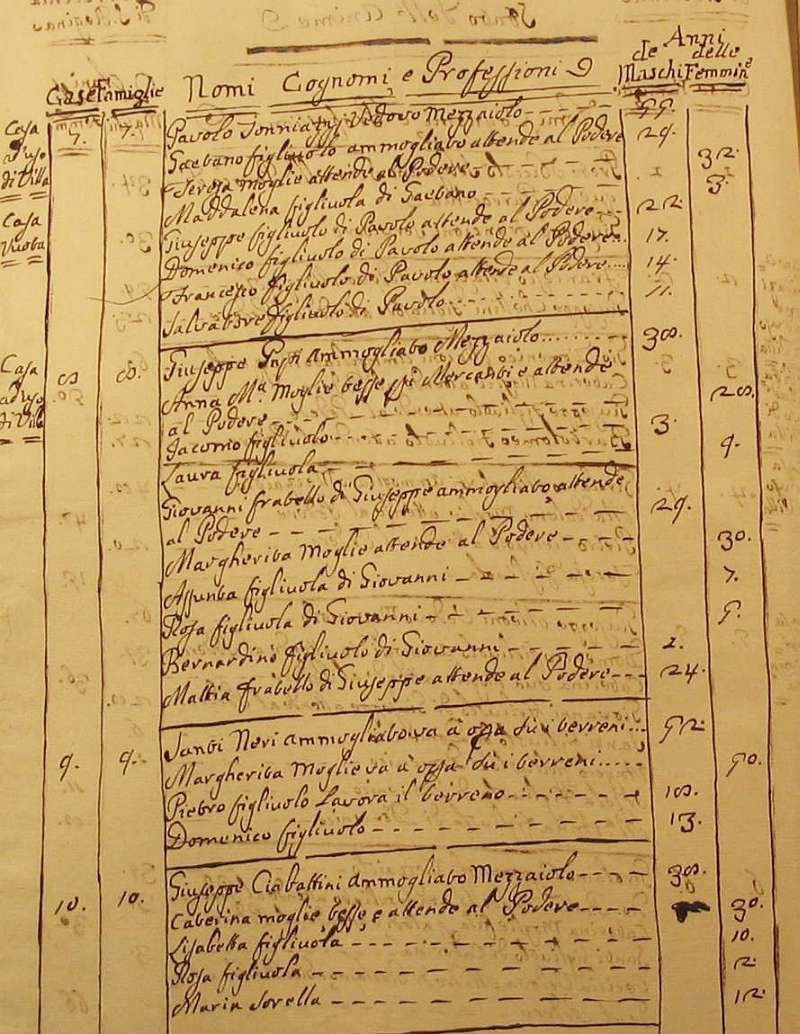 Anni
de delle
Case Famiglie Nomi Cognomi e Professioni Maschi Femmine
Casa ad uso di Villa 7. 7. Pavolo Vedovo Mezzaiolo
Gaetano figliuolo ammogliato attende al Podere 29.
Teresa moglie attende al Podere 32.
Maddalena figliuola di Gaetano 3.
Casa Vuota Giuseppe figliuolo di Pavolo attende al Podere 22.
Domenico figliuolo di Pavolo attende al Podere 17.
Francesco figliuolo di Pavolo attende al Podere 14.
Salvatore figliuolo di Pavolo 11.
Casa ad uso di Villa 8 8. Giuseppe ammogliato Mezzaiolo 38.
Anna M.a Moglie tesse pi Mercanti e attende
al Podere 28.
Jacomo figliuolo 3.
Laura figliuola 9.
Giovanni fratello di Giuseppe ammogliato attende
al Podere 29.
Margherita Moglie attende al Podere 30.
Assunta figliuola di Giovanni 7.
Rosa figliuola di Giovanni 5.
Bernardino figliuolo di Giovanni 2.
Mattia fratello di Giuseppe attende al Podere 24.
9. 9. Santi Neri ammogliato va à opra sù i terreni 52.
Margherita Moglie va à opra sù i terreni 50.
Pietro figliuolo Lavora il terreno 18.
Domenico figliuolo 13.
10. 10. Giuseppe Ciabattini Ammogliato Mezzaiolo 38.
Caterina moglie tesse, e attende al Podere 30.
Lisabetta figliuola 10.
Rosa figliuola 2.
Maria Sorella 12.